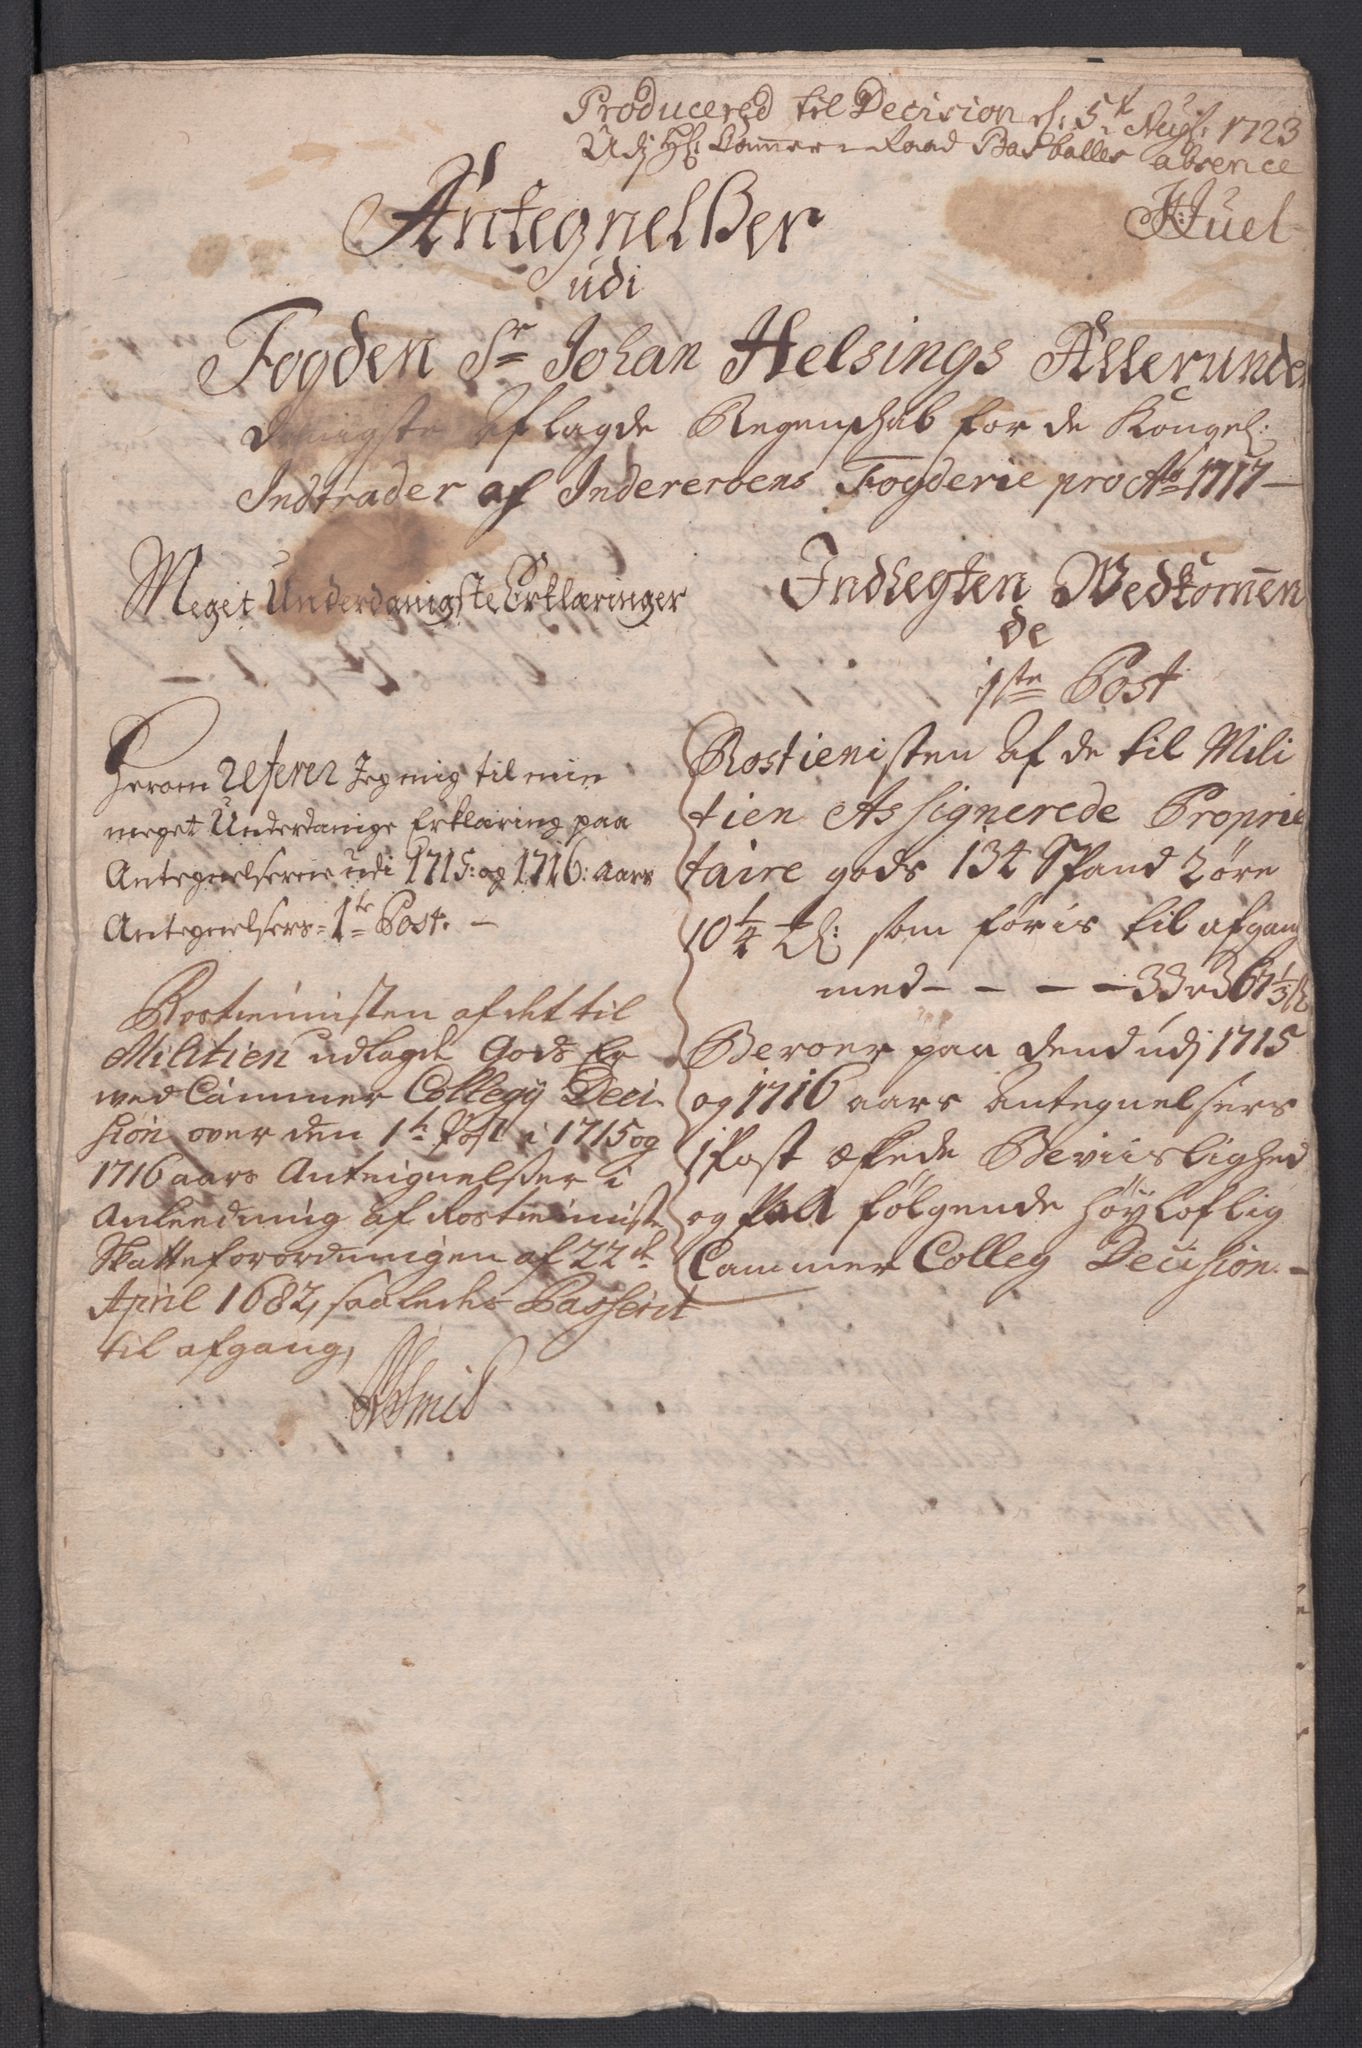 Producered til Decision d: 5t Aug: 1723
Udj Hl: Cammer-Raad Basballes absence
H: Juel
Antegnelßer
udi
Fogden Sr Johan Helsings Allerunder
danigste Aflagde Regenschab for de Kongel:
Indtrader af Indereroens Fogderie pro Ao 1717
Meget Underdanigste Erklæringer
Indtegten Vedkommen
de
1ste Post
Herom referer Jeg mig til min
meget Underdanige Erklaring paa
Antegnelserne udi 1715: og 1716: aars
Antegnelsers 1te Post. -
Rostienisten af det til
Militien udlagde Gods Er
ved Cammer Collegij Deci
sion over den 1te Post i 1715 og
1716 aars Anteignelßer i
Anleedning af Rostienniste
Skatteforordningen af 22de
April 1682, saaledes Passerit
til afgang,
Smid
Rostienisten Af de til Mili
tien Assignerede Proprie
taire gods 134 Spand 2 øre
10 1/4 som føris til afgang
med - - - - 33 rd 67 1/3 s
Beroer paa dend udj 1715
og 1716 aars Antegnelsers
1 Post æskede Beviislighed
og paa følgende høyloflig
Cammer Colleg Decision. -